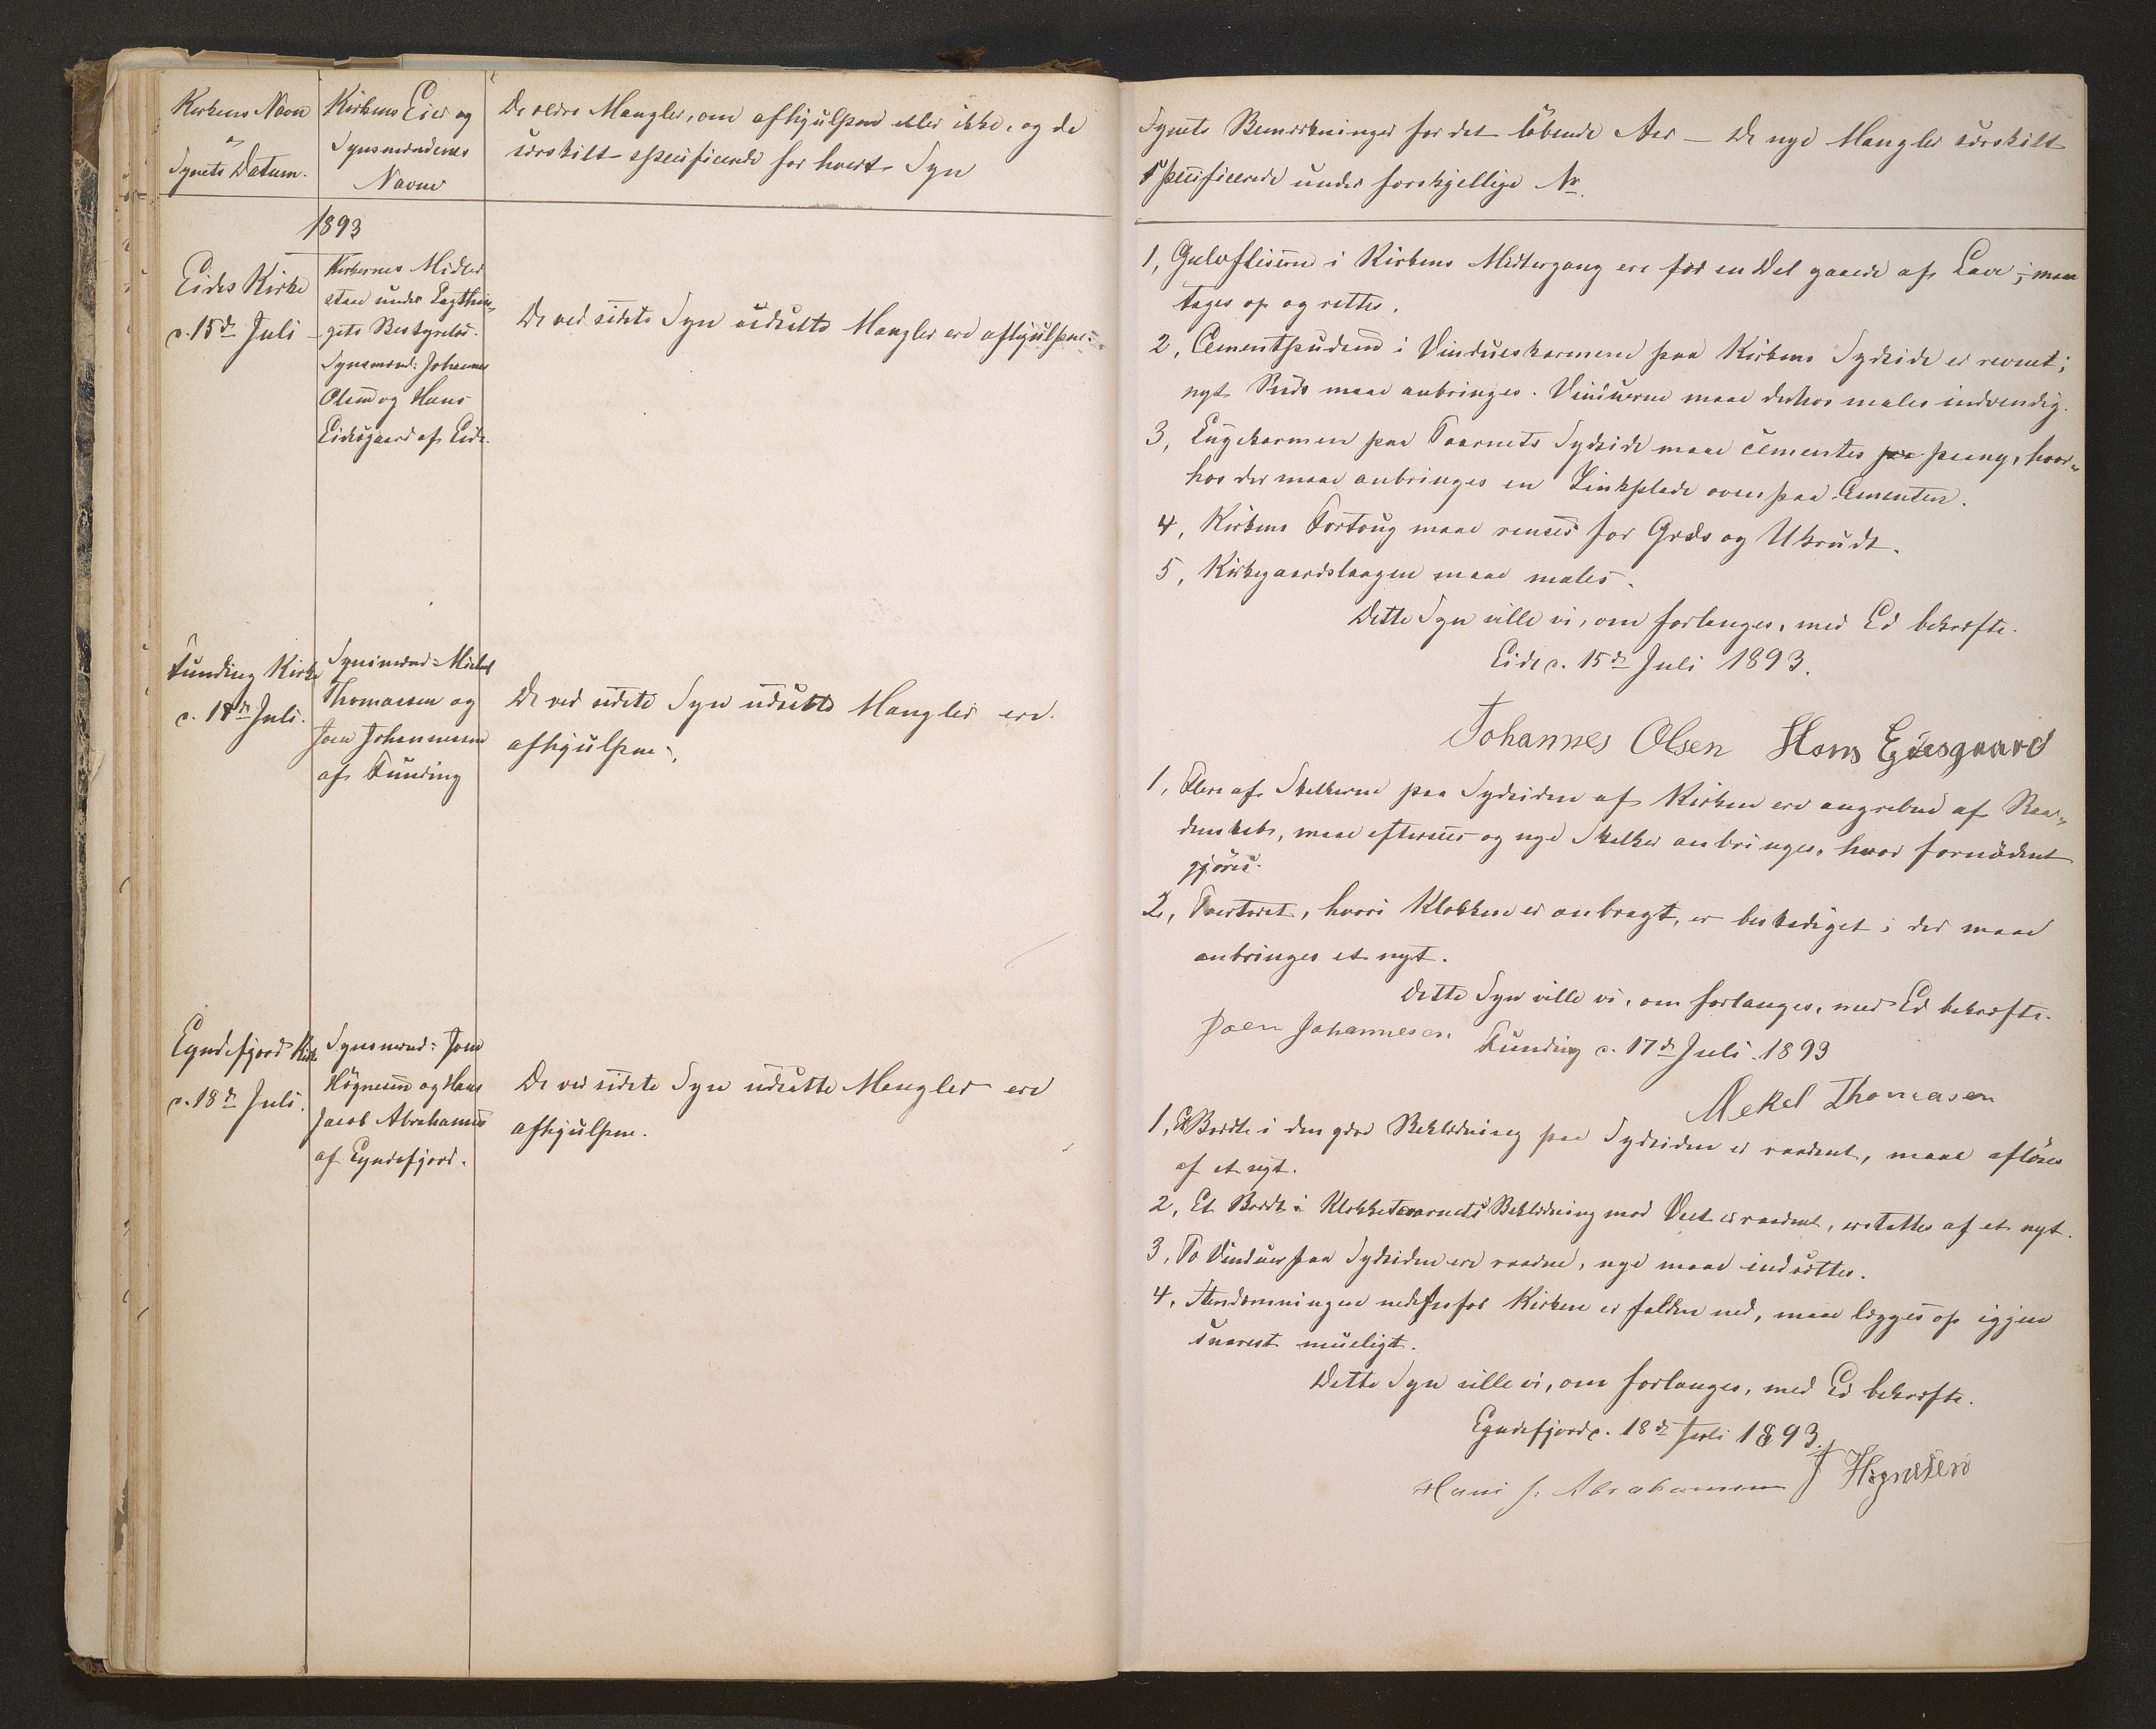 Kirkens Navn
og
Synets Datum.
Kirkens Eier og
Synsmændenes
Navne
De ældre Mangler, om afhjulpne eller ikke, og de
særskilt specificerede for hvert Syn
1893
Eides Kirke
d. 15de Juli
Kirkernes Midler
staae under Lagthin-
gets Bestyrelse.
Synsmænd: Johannes
Olsen og Hans
Eidesgaard af Eide.
De ved sidste Syn udsatte Mangler ere afhjulpne.
Funding Kirke
d. 17de Juli.
Synsmænd: Mickel
Thomassen og
Joen Johannesen
af Funding
De ved sidste Syn udsatte Mangler ere
afhjulpne.
Eyndefjord Kirke
d. 18de Juli.
Synsmænd: Joen
Høgnesen og Hans
Jacob Abrahamsen
af Eyndefjord.
De ved sidste Syn udsatte Mangler ere
afhjulpne.
Synets Bemærkninger for det løbende Aar — De nye Mangler særskilt
specificerede under forskjellige Nr.
1, Gulvfliserne i Kirkens Midtergang ere for en Del gaaede af Lave; maa
tages op og rettes.
2, Cementpudsen i Vindueskarmene paa Kirkens Sydside er revnet;
nyt Puds maae anbringes. Vinduerne maae derhos males indvendig.
3, Lugekarmen paa Taarnets Sydside maae cementes paa paany, hvor-
hos der maae anbringes en Zinkplade oven paa Cementen.
4, Kirkens Fortoug maae renses for Græs og Ukrudt.
5, Kirkegaardslaagen maae males.
Dette Syn ville vi, om forlanges, med Ed bekræfte.
Eide d. 15de Juli 1893.
Johannes Olsen Hans Eidesgaard
1, Flere af Skelkerne paa Sydsiden af Kirken ere angrebne af Raa-
denskab, maae efterses og nye Skelker anbringes, hvor fornødent
gjøres.
2, Tværtræet, hvori Klokken er anbragt, er beskadiget; der maae
anbringes et nyt.
Dette Syn ville vi, om forlanges, med Ed bekræfte.
Joen Johannesen Funding d. 17de Juli 1893
Mekel Thomasen
1, Et Bordt i den Beklædning paa Sydsiden er raadent, maae afløses
af et nyt.
2, Et Bordt i Klokketaarnets Beklædning mod Vest er raadent, erstattes af et nyt.
3, To Vinduer paa Sydsiden ere raadne, nye maae indsættes.
4, Stendæmningen nedenfor Kirken er falden ned, maae lægges op iggjen
snarest mueligt.
Dette Syn ville vi, om forlanges, med Ed bekræfte.
Eyndefjord d. 18de Juli 1893.
Hans J. Abrahamsen J Høgnesen